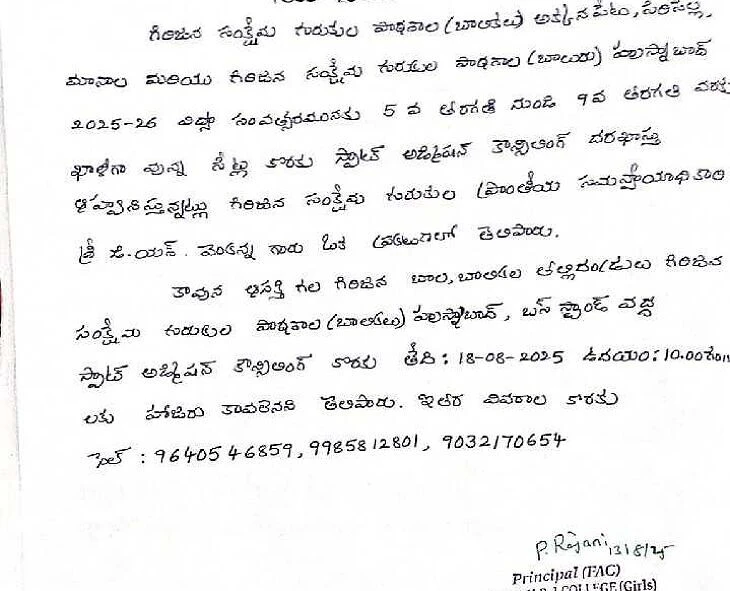 గిరిజన సంక్షేమ గురుకుల పాఠశాల (బాలికలు) అక్కన్నపేట, సిరిసిల్ల,
మానాల మరియు గిరిజన సంక్షేమ గురుకుల పాఠశాల (బాలురు) హుస్నాబాద్
2025-26 విద్యా సంవత్సరమునకు 5 వ తరగతి నుండి 9వ తరగతి వరకు
ఖాళీగా వున్న సీట్ల కొరకు స్పాట్ అడ్మిషన్ కౌన్సిలింగ్ దరఖాస్తు
ఆహ్వానిస్తున్నట్లు గిరిజన సంక్షేమ గురుకుల ప్రాంతీయ సమన్వయాధికారి
శ్రీ డి.యస్. వెంకన్న గారు ఓక ప్రకటనలో తెలిపారు.
కావున ఆసక్తి గల గిరిజన బాల, బాలికల తల్లిదండ్రులు గిరిజన
సంక్షేమ గురుకుల పాఠశాల (బాలికలు) హుస్నాబాద్, బస్ స్టాండ్ వద్ద
స్పాట్ అడ్మిషన్ కౌన్సిలింగ్ కొరకు తేది : 18-08-2025 ఉదయం : 10.00గం॥
లకు హాజరు కావలెనని తెలిపారు. ఇతర వివరాల కొరకు
సెల్ : 9640546859, 9985812801, 9032170654
P. Rajani 13/8/25
Principal (FAC)
COLLEGE (Girls)